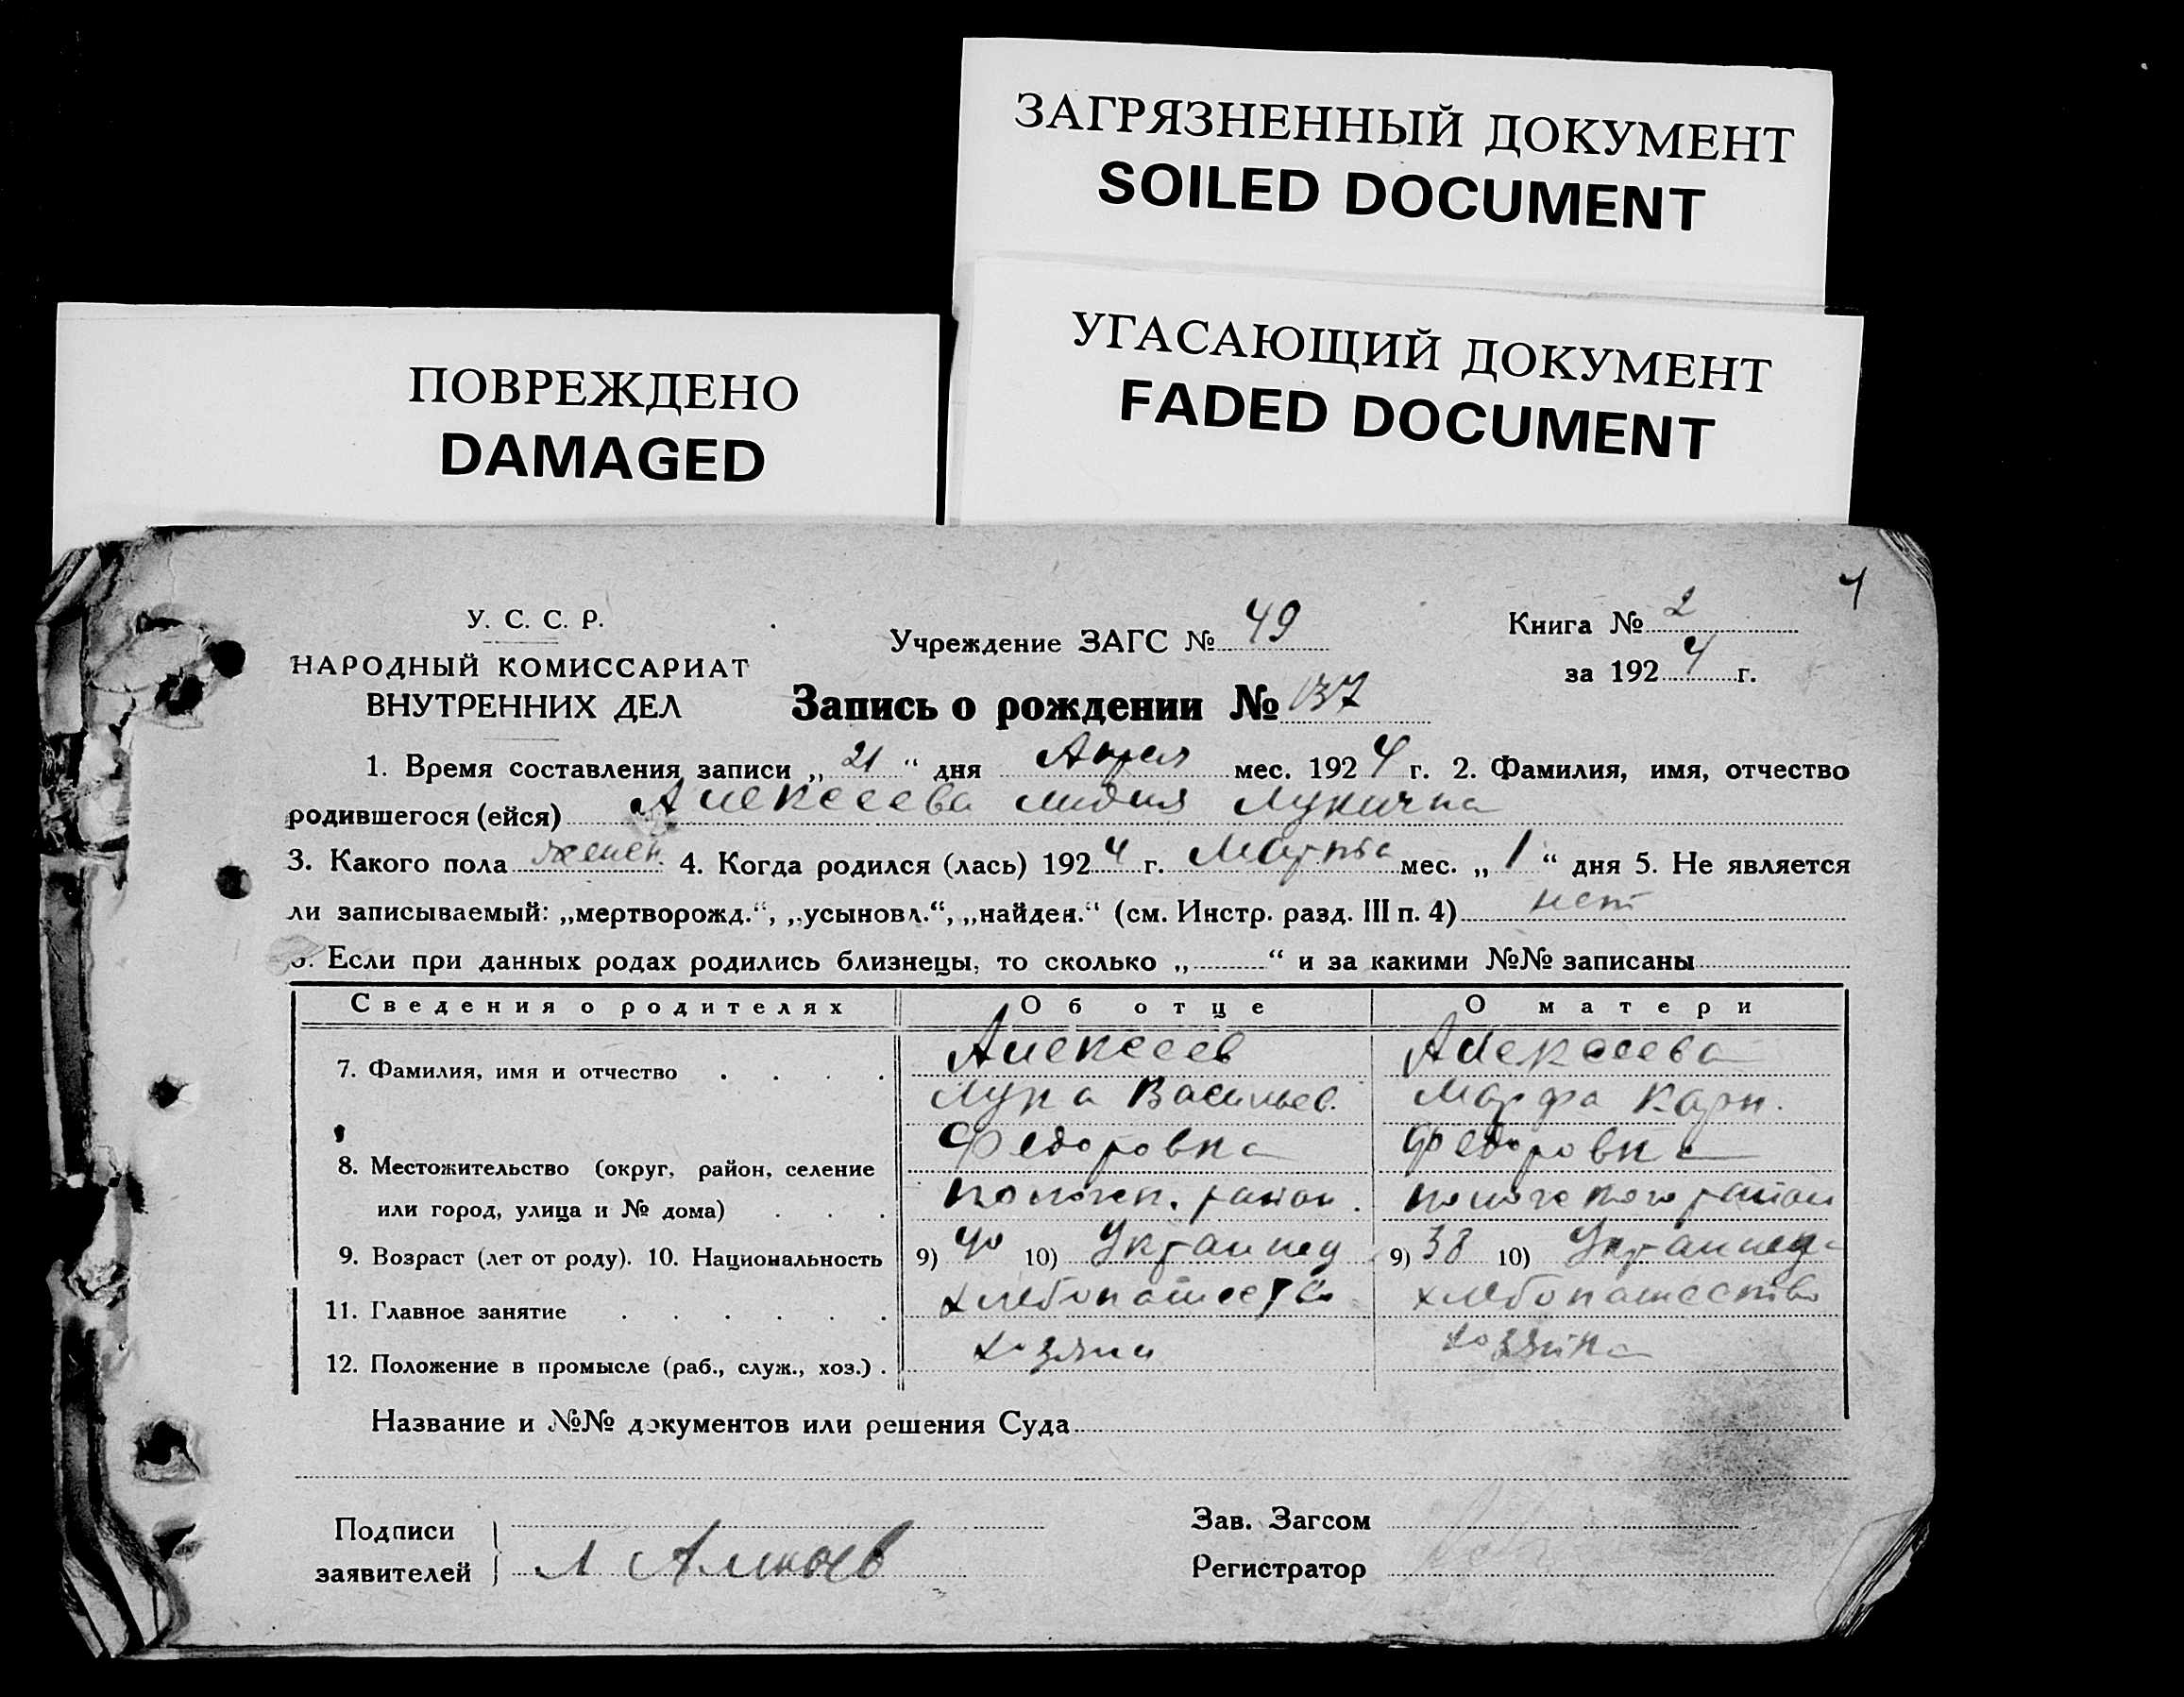 ЗАГРЯЗНЕННЫЙ ДОКУМЕНТ
SOILED DOCUMENT
УГАСАЮЩИЙ ДОКУМЕНТ
FADED DOCUMENT
ПОВРЕЖДЕНО
DAMAGED
4
У. С. С. Р.
НАРОДНЫЙ КОМИССАРИАТ
ВНУТРЕННИХ ДЕЛ
Учреждение ЗАГС № 49
Книга № 2
за 1924 г.
Запись о рождении № 137
1. Время составления записи „21“ дня Апреля мес. 1924 г. 2. Фамилия, имя, отчество
родившегося (ейся) Алексеева Лидия Лукична
3. Какого пола женск. 4. Когда родился (лась) 1924 г. Марта мес. „1“ дня 5. Не является
ли записываемый: „мертворожд.“, „усыновл.“, „найден.“ (см. Инстр. разд. III п. 4) нет
6. Если при данных родах родились близнецы, то сколько „......“ и за какими №№ записаны
Сведения о родителях Об отце О матери
7. Фамилия, имя и отчество Алексеев Алексеева
Лука Васильев. Марфа Карп.
Федоровка Федоровка
8. Местожительство (округ, район, селение
или город, улица и № дома) района
9. Возраст (лет от роду). 10. Национальность 9) 40 10) Украинец 9) 38 10) Украинка
11. Главное занятие хлебопашество хлебопашество
12. Положение в промысле (раб., служ., хоз.) хозяин хозяйка
Название и №№ документов или решения Суда
Подписи
заявителей
Зав. Загсом
Регистратор